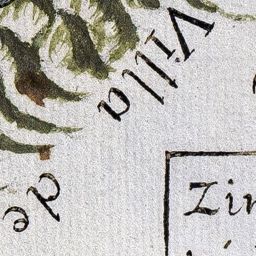 Villa
de
Zin